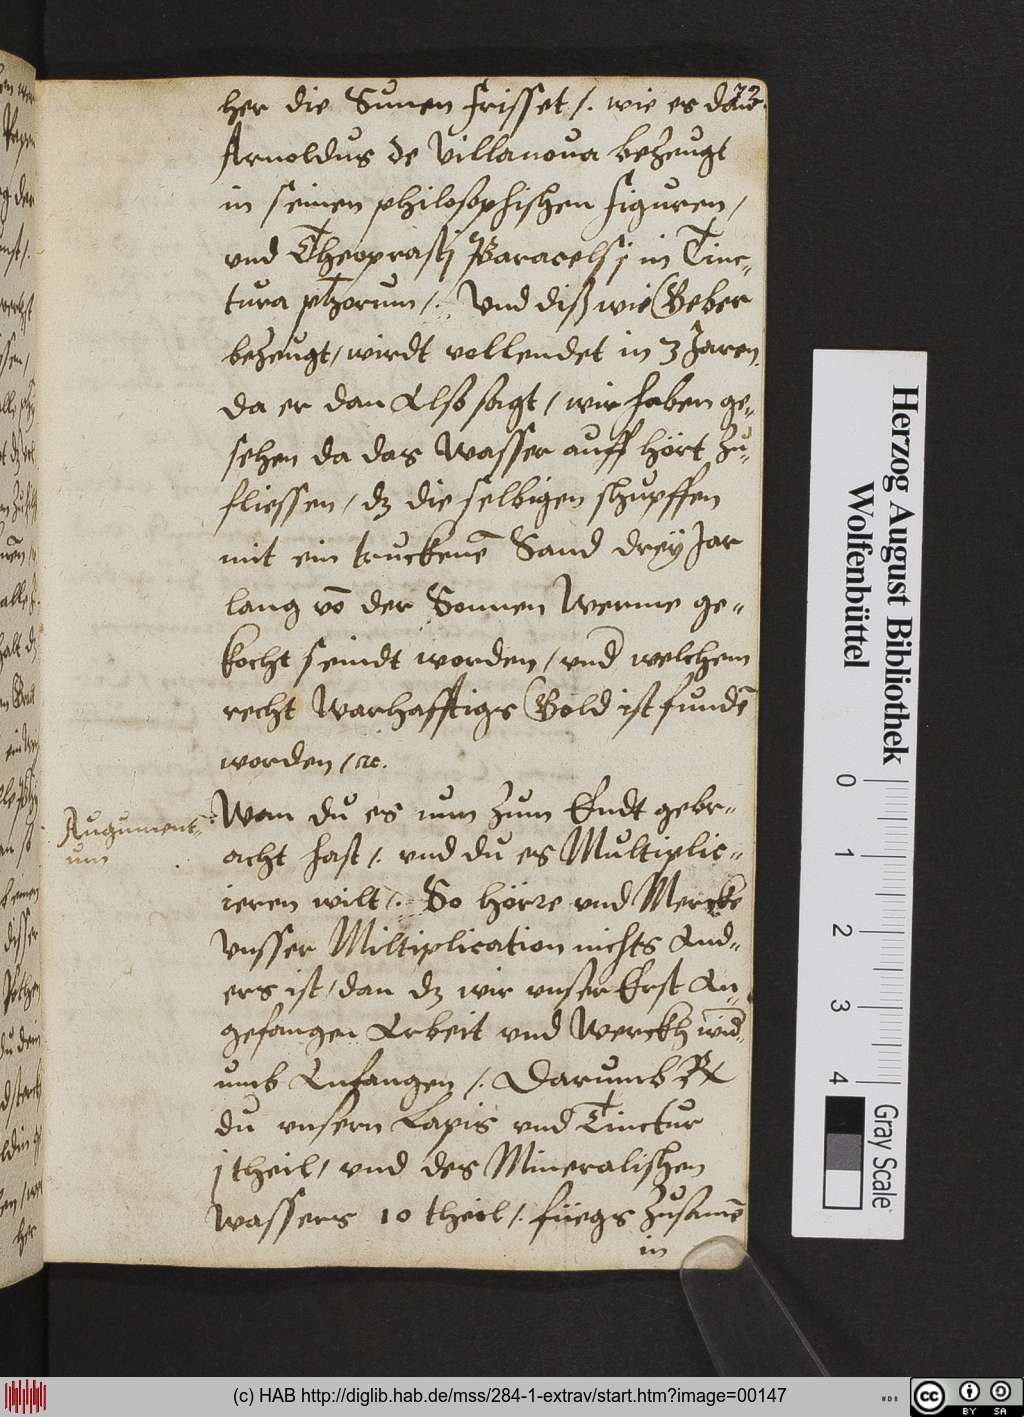 72
her die Sunen frisset /. wie es dan
Arnoldus de Villanoua bezeugt
in seinen philosophischen figuren /
vnd Theoprastj Paracelsj in Tinc=
tura phorum /. Vnd diß wie Geber
bezeugt / wirdt vollendet in 3 Jaren
da er dan Also sagt / wir haben ge=
sehen da das Wasser auff hört zu=
fliessen / dz die selbigen shupffen
mit ein truckenē Sand drey Jar
lang vō der Sonnen Werme ge=
kocht seindt worden / vnd welchem
recht Warhafftigs Gold ist fundē
worden / ꝛc.
Augument=
um
Wan du es nun zum Endt gebr=
acht hast /. vnd du es Multiplic=
ieren wilt /. So höre vnd Mercke
Vnsser Miltiplication nichts And=
ers ist / dan dz wir vnser Erst An=
gefangen Arbeit vnd Werckh wid=
umb Anfangen /. Darumb ℞
du vnsern Lapis vnd Tinctur
j theil / vnd des Mineralishen
Wassers 10 theil /. füegs zusamē
in
her
Herzog August Bibliothek
Wolfenbüttel
0
1
2
3
4
Gray Scale
(c) HAB http://diglib.hab.de/mss/284-1-extrav/start.htm?image=00147
WDB
cc
BY SA